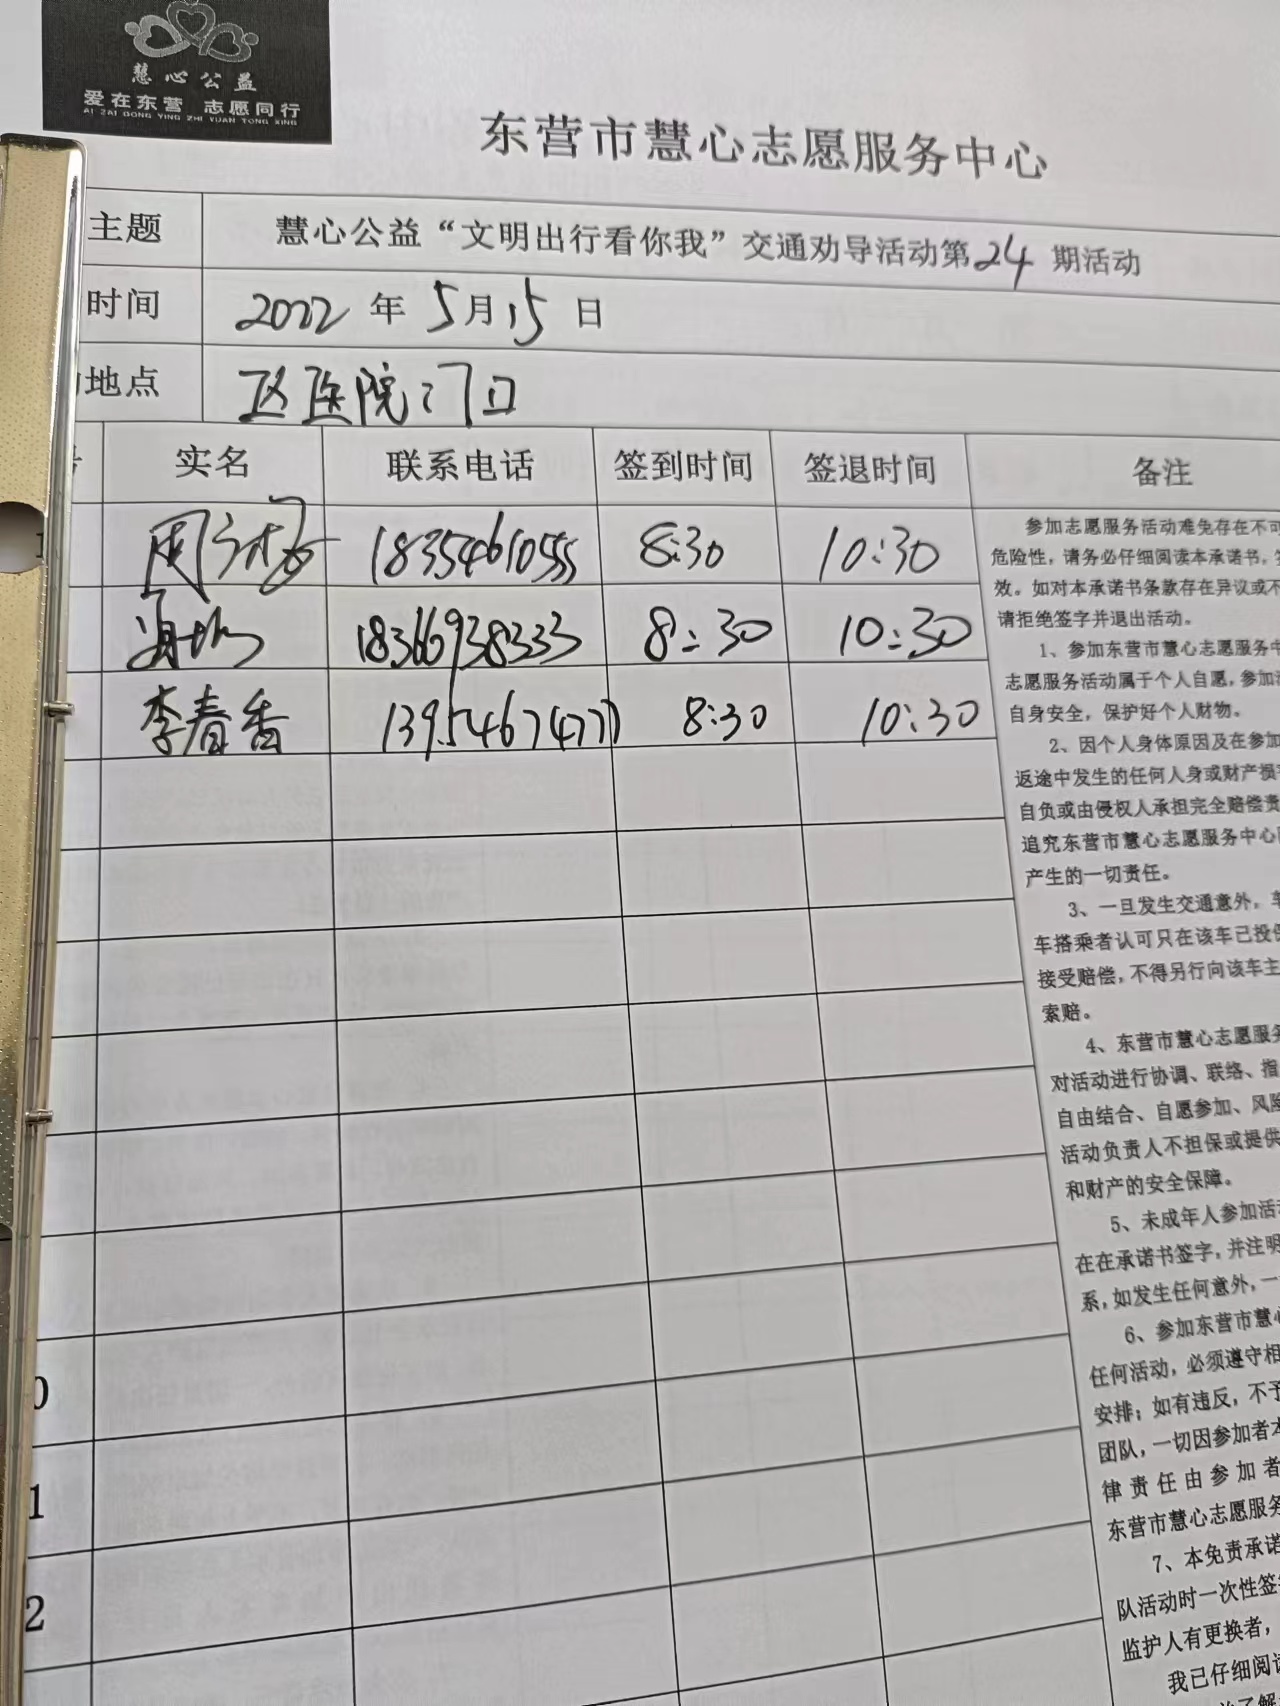 慧心公益
爱在东营 志愿同行
AI ZAI DONG YING ZHI YUAN TONG XING
东营市慧心志愿服务中心
主题 慧心公益“文明出行看你我”交通劝导活动第24期活动
时间 2022年5月15日
地点 区医院门口
实名 联系电话 签到时间 签退时间 备注
周 18354610555 8:30 10:30
18366938333 8:30 10:30
李春香 13954674777 8:30 10:30
0
1
2
参加志愿服务活动难免存在不可
危险性，请务必仔细阅读本承诺书，
效。如对本承诺书条款存在异议或不
请拒绝签字并退出活动。
1、参加东营市慧心志愿服务中
志愿服务活动属于个人自愿，参加
自身安全，保护好个人财物。
2、因个人身体原因及在参加
返途中发生的任何人身或财产损
自负或由侵权人承担完全赔偿责
追究东营市慧心志愿服务中心
产生的一切责任。
3、一旦发生交通意外，车
车搭乘者认可只在该车已投保
接受赔偿，不得另行向该车主
索赔。
4、东营市慧心志愿服务
对活动进行协调、联络、指
自由结合、自愿参加、风险
活动负责人不担保或提供
和财产的安全保障。
5、未成年人参加活动
在在承诺书签字，并注明
系，如发生任何意外，一
6、参加东营市慧心
任何活动，必须遵守相
安排；如有违反，不予
团队，一切因参加者本
律责任由参加者
东营市慧心志愿服务
7、本免责承诺
队活动时一次性签
监护人有更换者，
我已仔细阅读